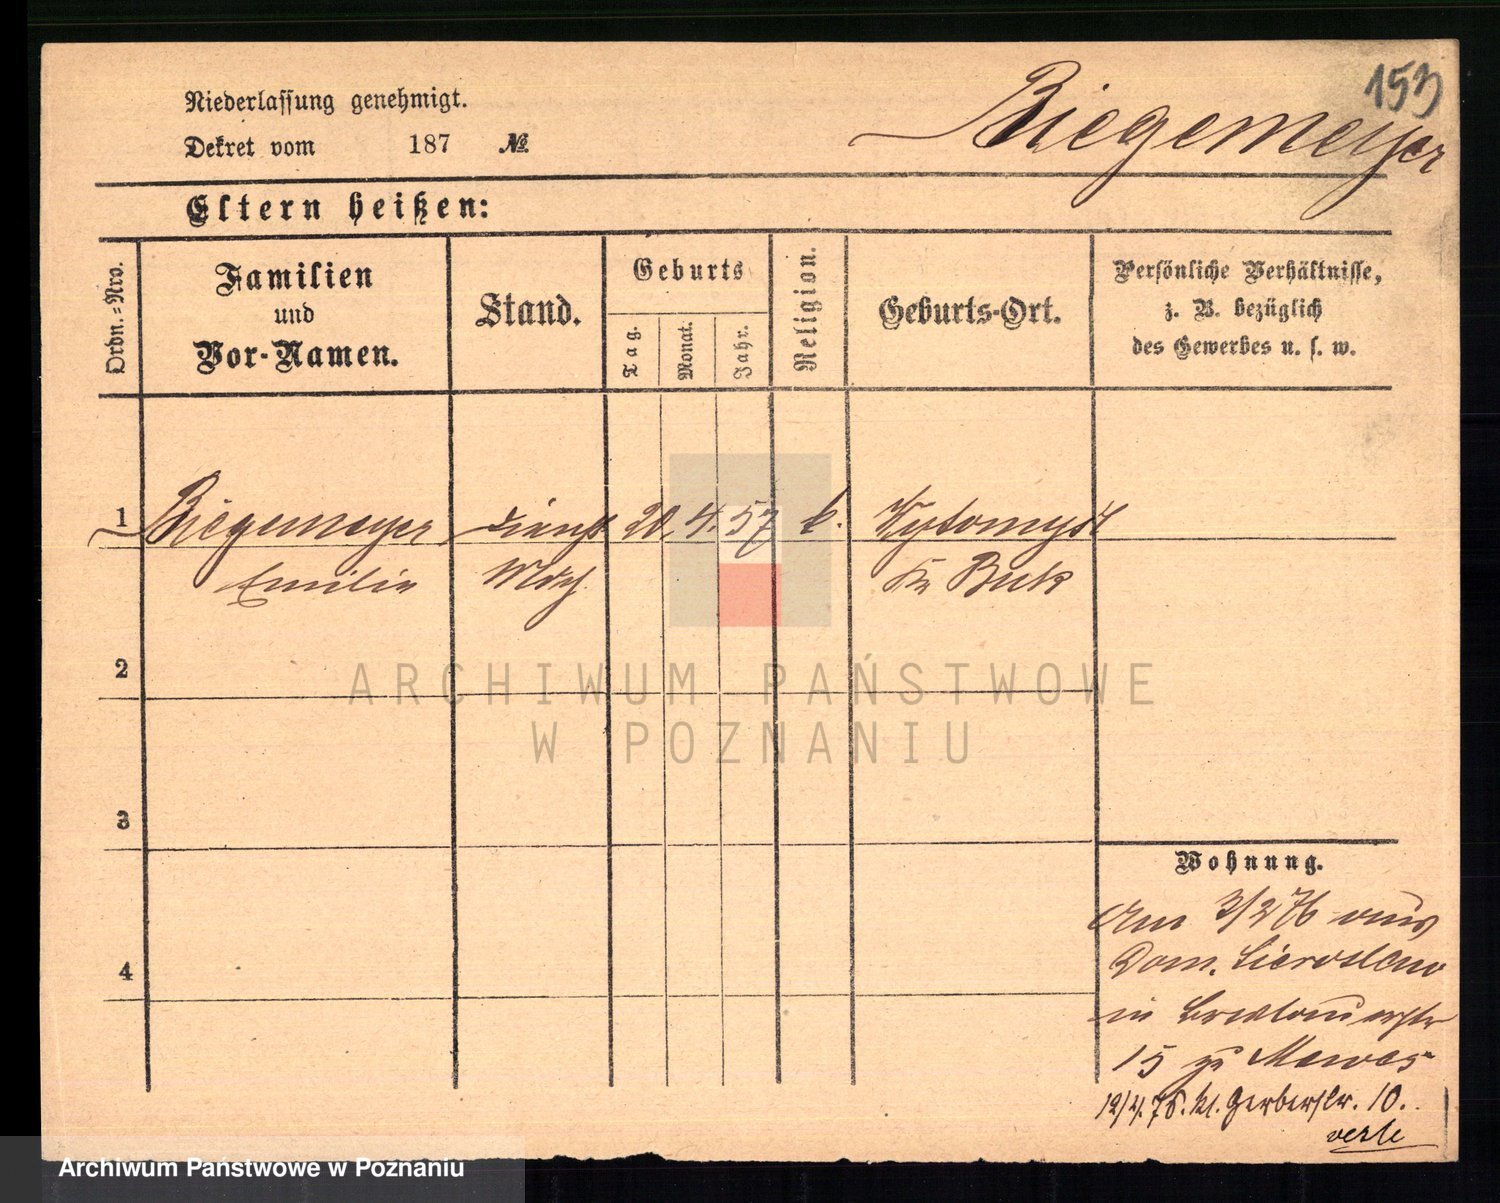 153
Niederlassung genehmigt.
Riegemeyer
Dekret vom 187 №
Eltern heißen:
Ordn.-Nro.
Familien
und
Vor-Namen.
Stand.
Geburts
Tag.
Monat.
Jahr.
Religion.
Geburts-Ort.
Persönliche Verhältnisse,
z. B. bezüglich
des Gewerbes u. s. w.
1 Riegemeyer Dienst 20. 4. 57 k.
Emilie Mdch Kr Buk
2
3
4
Wohnung.
Am 3/2 76 aus
Dom.
in
15 zu
12/4. 76. kl. Gerberstr. 10.
ARCHIWUM PAŃSTWOWE
W POZNANIU
Archiwum Państwowe w Poznaniu